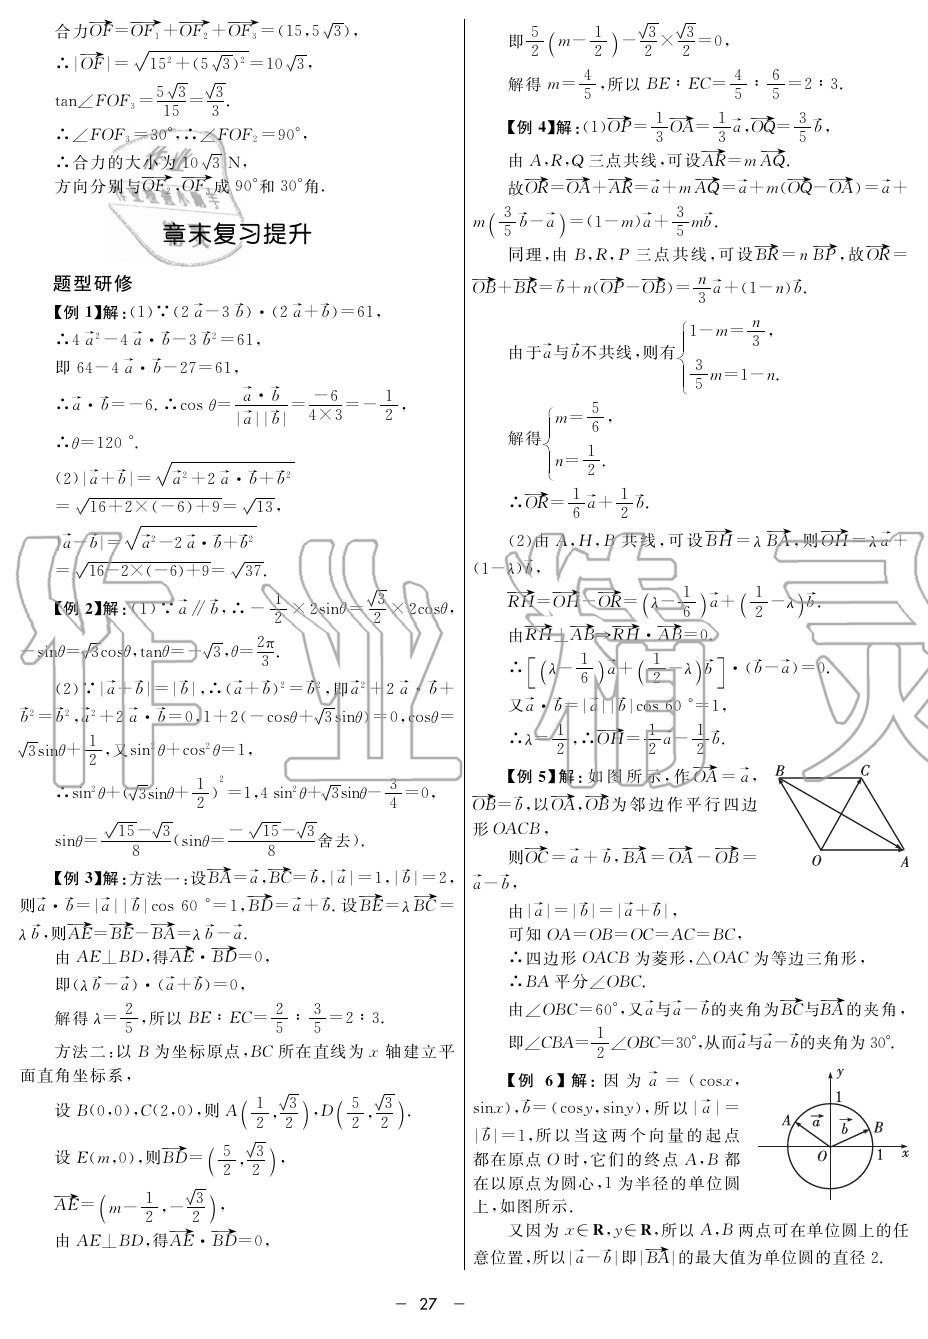 合力OF⃗=OF⃗₁+OF⃗₂+OF⃗₃=(15,5√3),
∴|OF⃗|=√(15²+(5√3)²)=10√3,
tan∠FOF₃=5√3/15=√3/3.
∴∠FOF₃=30°,∴∠FOF₂=90°,
∴合力的大小为10√3 N,
方向分别与OF⃗₂,OF⃗₃成90°和30°角.
章末复习提升
题型研修
【例1】解:(1)∵(2a⃗-3b⃗)·(2a⃗+b⃗)=61,
∴4a⃗²-4a⃗·b⃗-3b⃗²=61,
即64-4a⃗·b⃗-27=61,
∴a⃗·b⃗=-6.∴cos θ=a⃗·b⃗/(|a⃗||b⃗|)=-6/(4×3)=-1/2,
∴θ=120°.
(2)|a⃗+b⃗|=√(a⃗²+2a⃗·b⃗+b⃗²)
=√(16+2×(-6)+9)=√13,
|a⃗-b⃗|=√(a⃗²-2a⃗·b⃗+b⃗²)
=√(16-2×(-6)+9)=√37.
【例2】解:(1)∵a⃗∥b⃗,∴-1/2×2sinθ=√3/2×2cosθ,
-sinθ=√3cosθ,tanθ=-√3,θ=2π/3.
(2)∵|a⃗+b⃗|=|b⃗|,∴(a⃗+b⃗)²=b⃗²,即a⃗²+2a⃗·b⃗+
b⃗²=b⃗²,a⃗²+2a⃗·b⃗=0,1+2(-cosθ+√3sinθ)=0,cosθ=
√3sinθ+1/2,又sin²θ+cos²θ=1,
∴sin²θ+(√3sinθ+1/2)²=1,4sin²θ+√3sinθ-3/4=0,
sinθ=(√15-√3)/8(sinθ=(-√15-√3)/8舍去).
【例3】解:方法一:设BA⃗=a⃗,BC⃗=b⃗,|a⃗|=1,|b⃗|=2,
则a⃗·b⃗=|a⃗||b⃗|cos 60°=1,BD⃗=a⃗+b⃗.设BE⃗=λBC⃗=
λb⃗,则AE⃗=BE⃗-BA⃗=λb⃗-a⃗.
由AE⊥BD,得AE⃗·BD⃗=0,
即(λb⃗-a⃗)·(a⃗+b⃗)=0,
解得λ=2/5,所以BE∶EC=2/5∶3/5=2∶3.
方法二:以B为坐标原点,BC所在直线为x轴建立平
面直角坐标系,
设B(0,0),C(2,0),则A(1/2,√3/2),D(5/2,√3/2).
设E(m,0),则BD⃗=(5/2,√3/2),
AE⃗=(m-1/2,-√3/2),
由AE⊥BD,得AE⃗·BD⃗=0,
即5/2(m-1/2)-√3/2×√3/2=0,
解得m=4/5,所以BE∶EC=4/5∶6/5=2∶3.
【例4】解:(1)OP⃗=1/3OA⃗=1/3a⃗,OQ⃗=3/5b⃗,
由A,R,Q三点共线,可设AR⃗=mAQ⃗.
故OR⃗=OA⃗+AR⃗=a⃗+mAQ⃗=a⃗+m(OQ⃗-OA⃗)=a⃗+
m(3/5b⃗-a⃗)=(1-m)a⃗+3/5mb⃗.
同理,由B,R,P三点共线,可设BR⃗=nBP⃗,故OR⃗=
OB⃗+BR⃗=b⃗+n(OP⃗-OB⃗)=n/3a⃗+(1-n)b⃗.
由于a⃗与b⃗不共线,则有{1-m=n/3, 3/5m=1-n.
解得{m=5/6, n=1/2.
∴OR⃗=1/6a⃗+1/2b⃗.
(2)由A,H,B共线,可设BH⃗=λBA⃗,则OH⃗=λa⃗+
(1-λ)b⃗,
RH⃗=OH⃗-OR⃗=(λ-1/6)a⃗+(1/2-λ)b⃗.
由RH⃗⊥AB⃗⇒RH⃗·AB⃗=0.
∴[(λ-1/6)a⃗+(1/2-λ)b⃗]·(b⃗-a⃗)=0.
又a⃗·b⃗=|a⃗||b⃗|cos 60°=1,
∴λ=1/2,∴OH⃗=1/2a⃗-1/2b⃗.
【例5】解:如图所示,作OA⃗=a⃗,
OB⃗=b⃗,以OA⃗,OB⃗为邻边作平行四边
形OACB,
则OC⃗=a⃗+b⃗,BA⃗=OA⃗-OB⃗=
a⃗-b⃗,
B C
O A
由|a⃗|=|b⃗|=|a⃗+b⃗|,
可知OA=OB=OC=AC=BC,
∴四边形OACB为菱形,△OAC为等边三角形,
∴BA平分∠OBC.
由∠OBC=60°,又a⃗与a⃗-b⃗的夹角为BC⃗与BA⃗的夹角,
即∠CBA=1/2∠OBC=30°,从而a⃗与a⃗-b⃗的夹角为30°.
【例6】解:因为a⃗=(cosx,
sinx),b⃗=(cosy,siny),所以|a⃗|=
|b⃗|=1,所以当这两个向量的起点
都在原点O时,它们的终点A,B都
在以原点为圆心,1为半径的单位圆
上,如图所示.
y
1
A a⃗ b⃗ B
O 1 x
又因为x∈R,y∈R,所以A,B两点可在单位圆上的任
意位置,所以|a⃗-b⃗|即|BA⃗|的最大值为单位圆的直径2.
- 27 -
作业精灵